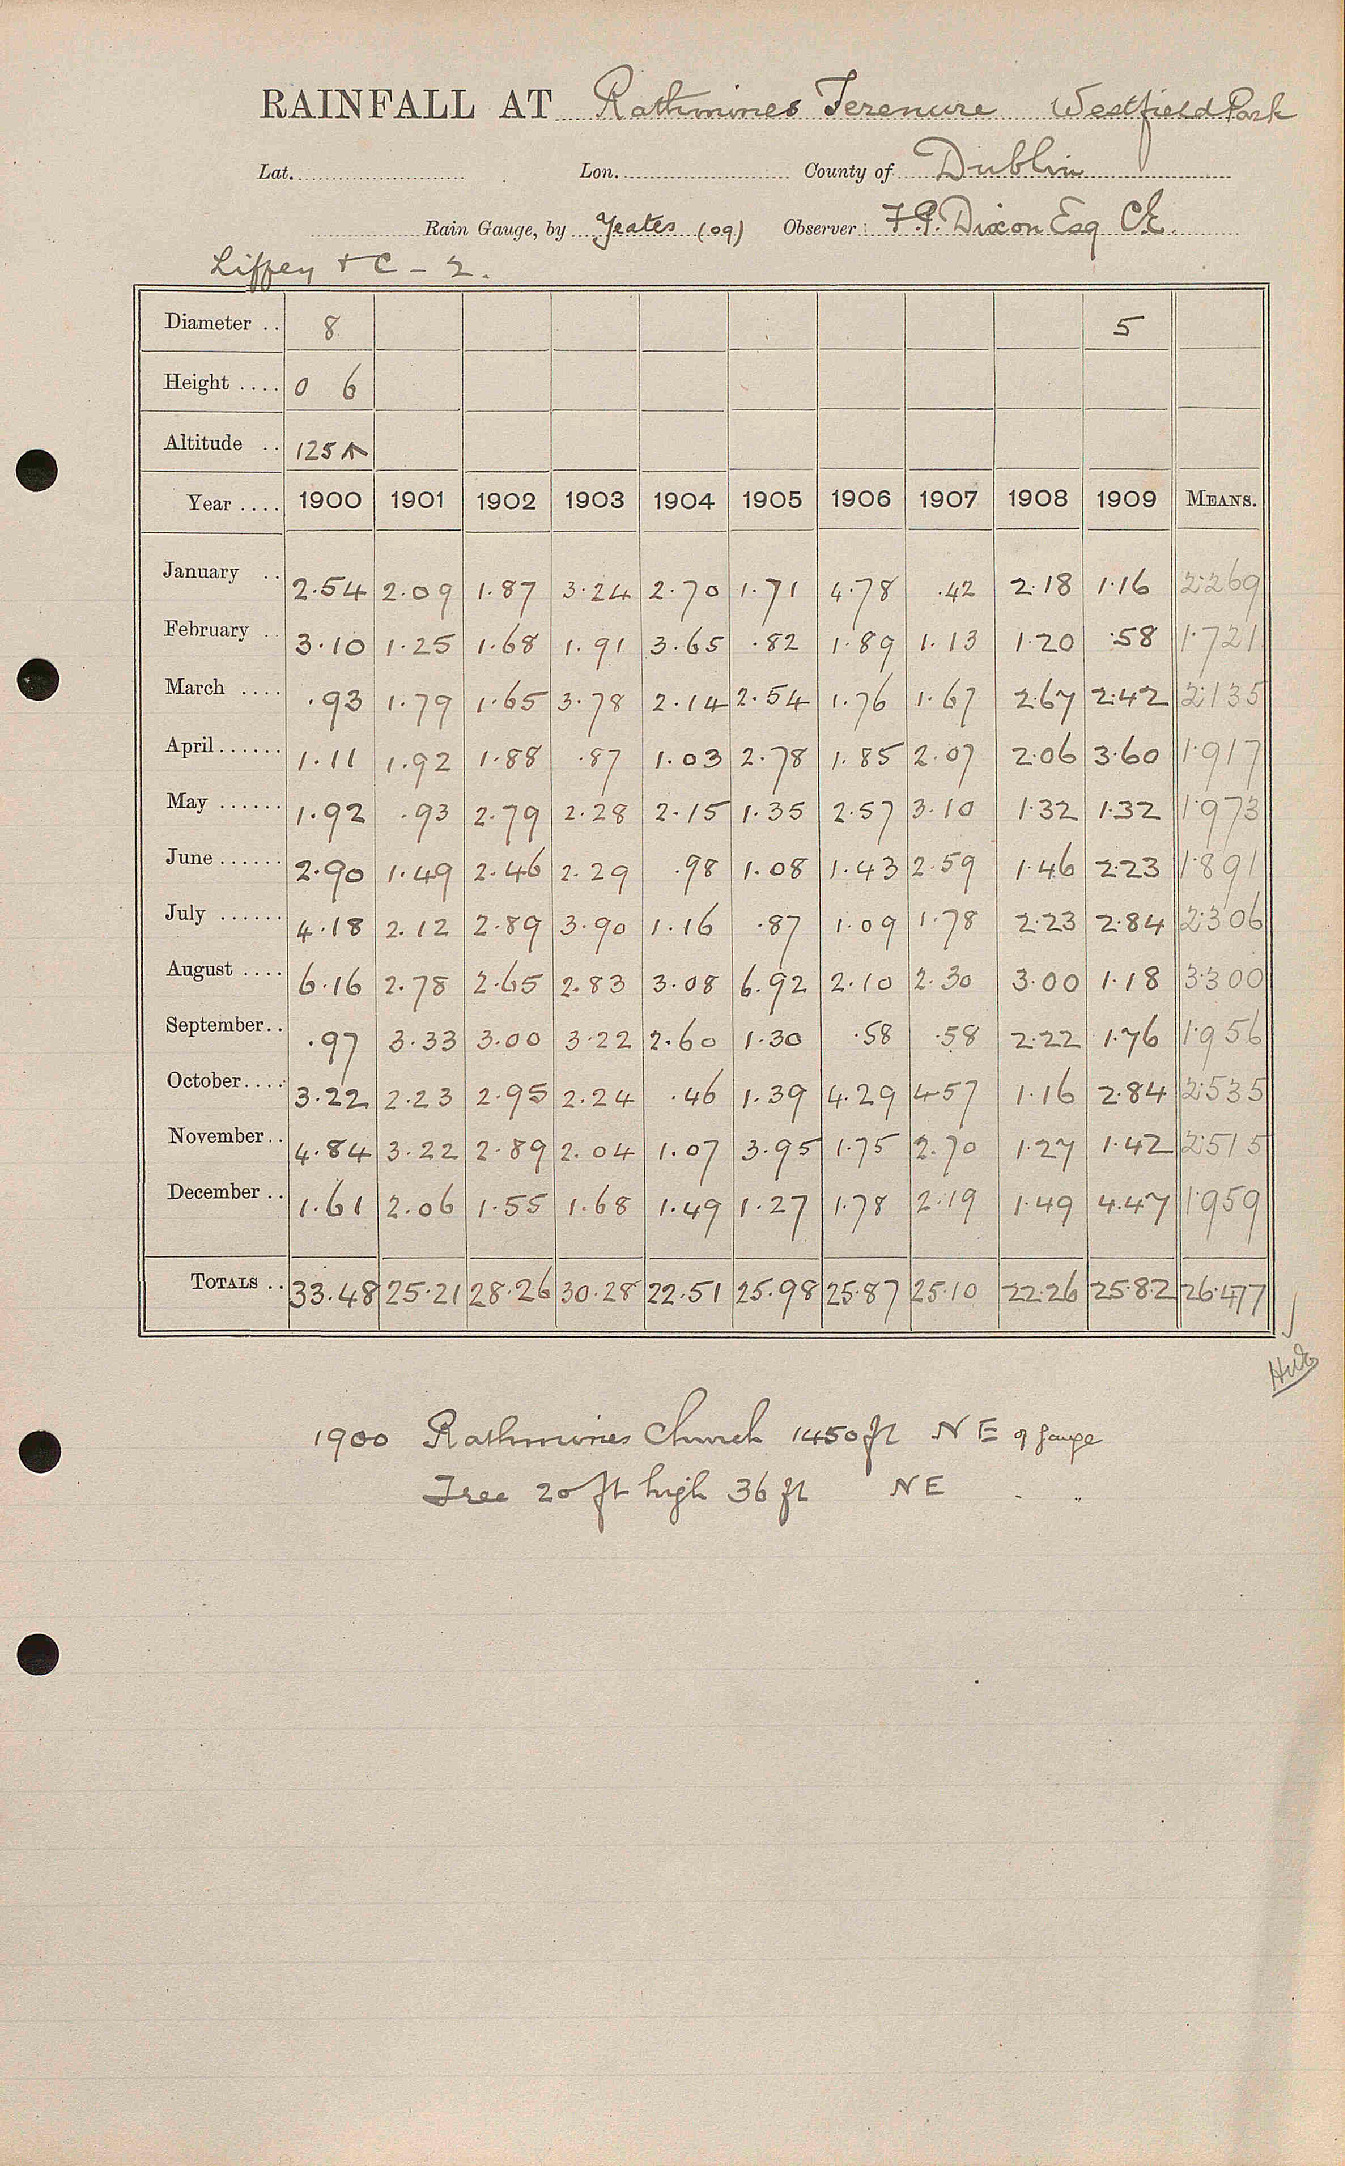 RAINFALL AT Rathmines Terenure Westfield Park
Lat. Lon. County of Dublin
Rain Gauge, by Yeates (09) Observer: F. P. Dixon Esq C.E.
Liffey + C - 2.
Diameter .. 8 5
Height .... 0 6
Altitude .. 125
Year .... 1900 1901 1902 1903 1904 1905 1906 1907 1908 1909 MEANS.
January .. 2.54 2.09 1.87 3.24 2.70 1.71 4.78 .42 2.18 1.16 2.269
February .. 3.10 1.25 1.68 1.91 3.65 .82 1.89 1.13 1.20 .58 1.721
March .... .93 1.79 1.65 3.78 2.14 2.54 1.76 1.67 2.67 2.42 2.135
April ...... 1.11 1.92 1.88 .87 1.03 2.78 1.85 2.07 2.06 3.60 1.917
May ...... 1.92 .93 2.79 2.28 2.15 1.35 2.57 3.10 1.32 1.32 1.973
June ...... 2.90 1.49 2.46 2.29 .98 1.08 1.43 2.59 1.46 2.23 1.891
July ...... 4.18 2.12 2.89 3.90 1.16 .87 1.09 1.78 2.23 2.84 2.306
August .... 6.16 2.78 2.65 2.83 3.08 6.92 2.10 2.30 3.00 1.18 3.300
September .. .97 3.33 3.00 3.22 2.60 1.30 .58 .58 2.22 1.76 1.956
October .... 3.22 2.23 2.95 2.24 .46 1.39 4.29 4.57 1.16 2.84 2.535
November .. 4.84 3.22 2.89 2.04 1.07 3.95 1.75 2.70 1.27 1.42 2.515
December .. 1.61 2.06 1.55 1.68 1.49 1.27 1.78 2.19 1.49 4.47 1.959
TOTALS .. 33.48 25.21 28.26 30.28 22.51 25.98 25.87 25.10 22.26 25.82 26.477
1900 Rathmines Church 1450 ft NE of gauge
Tree 20 ft high 36 ft NE " "